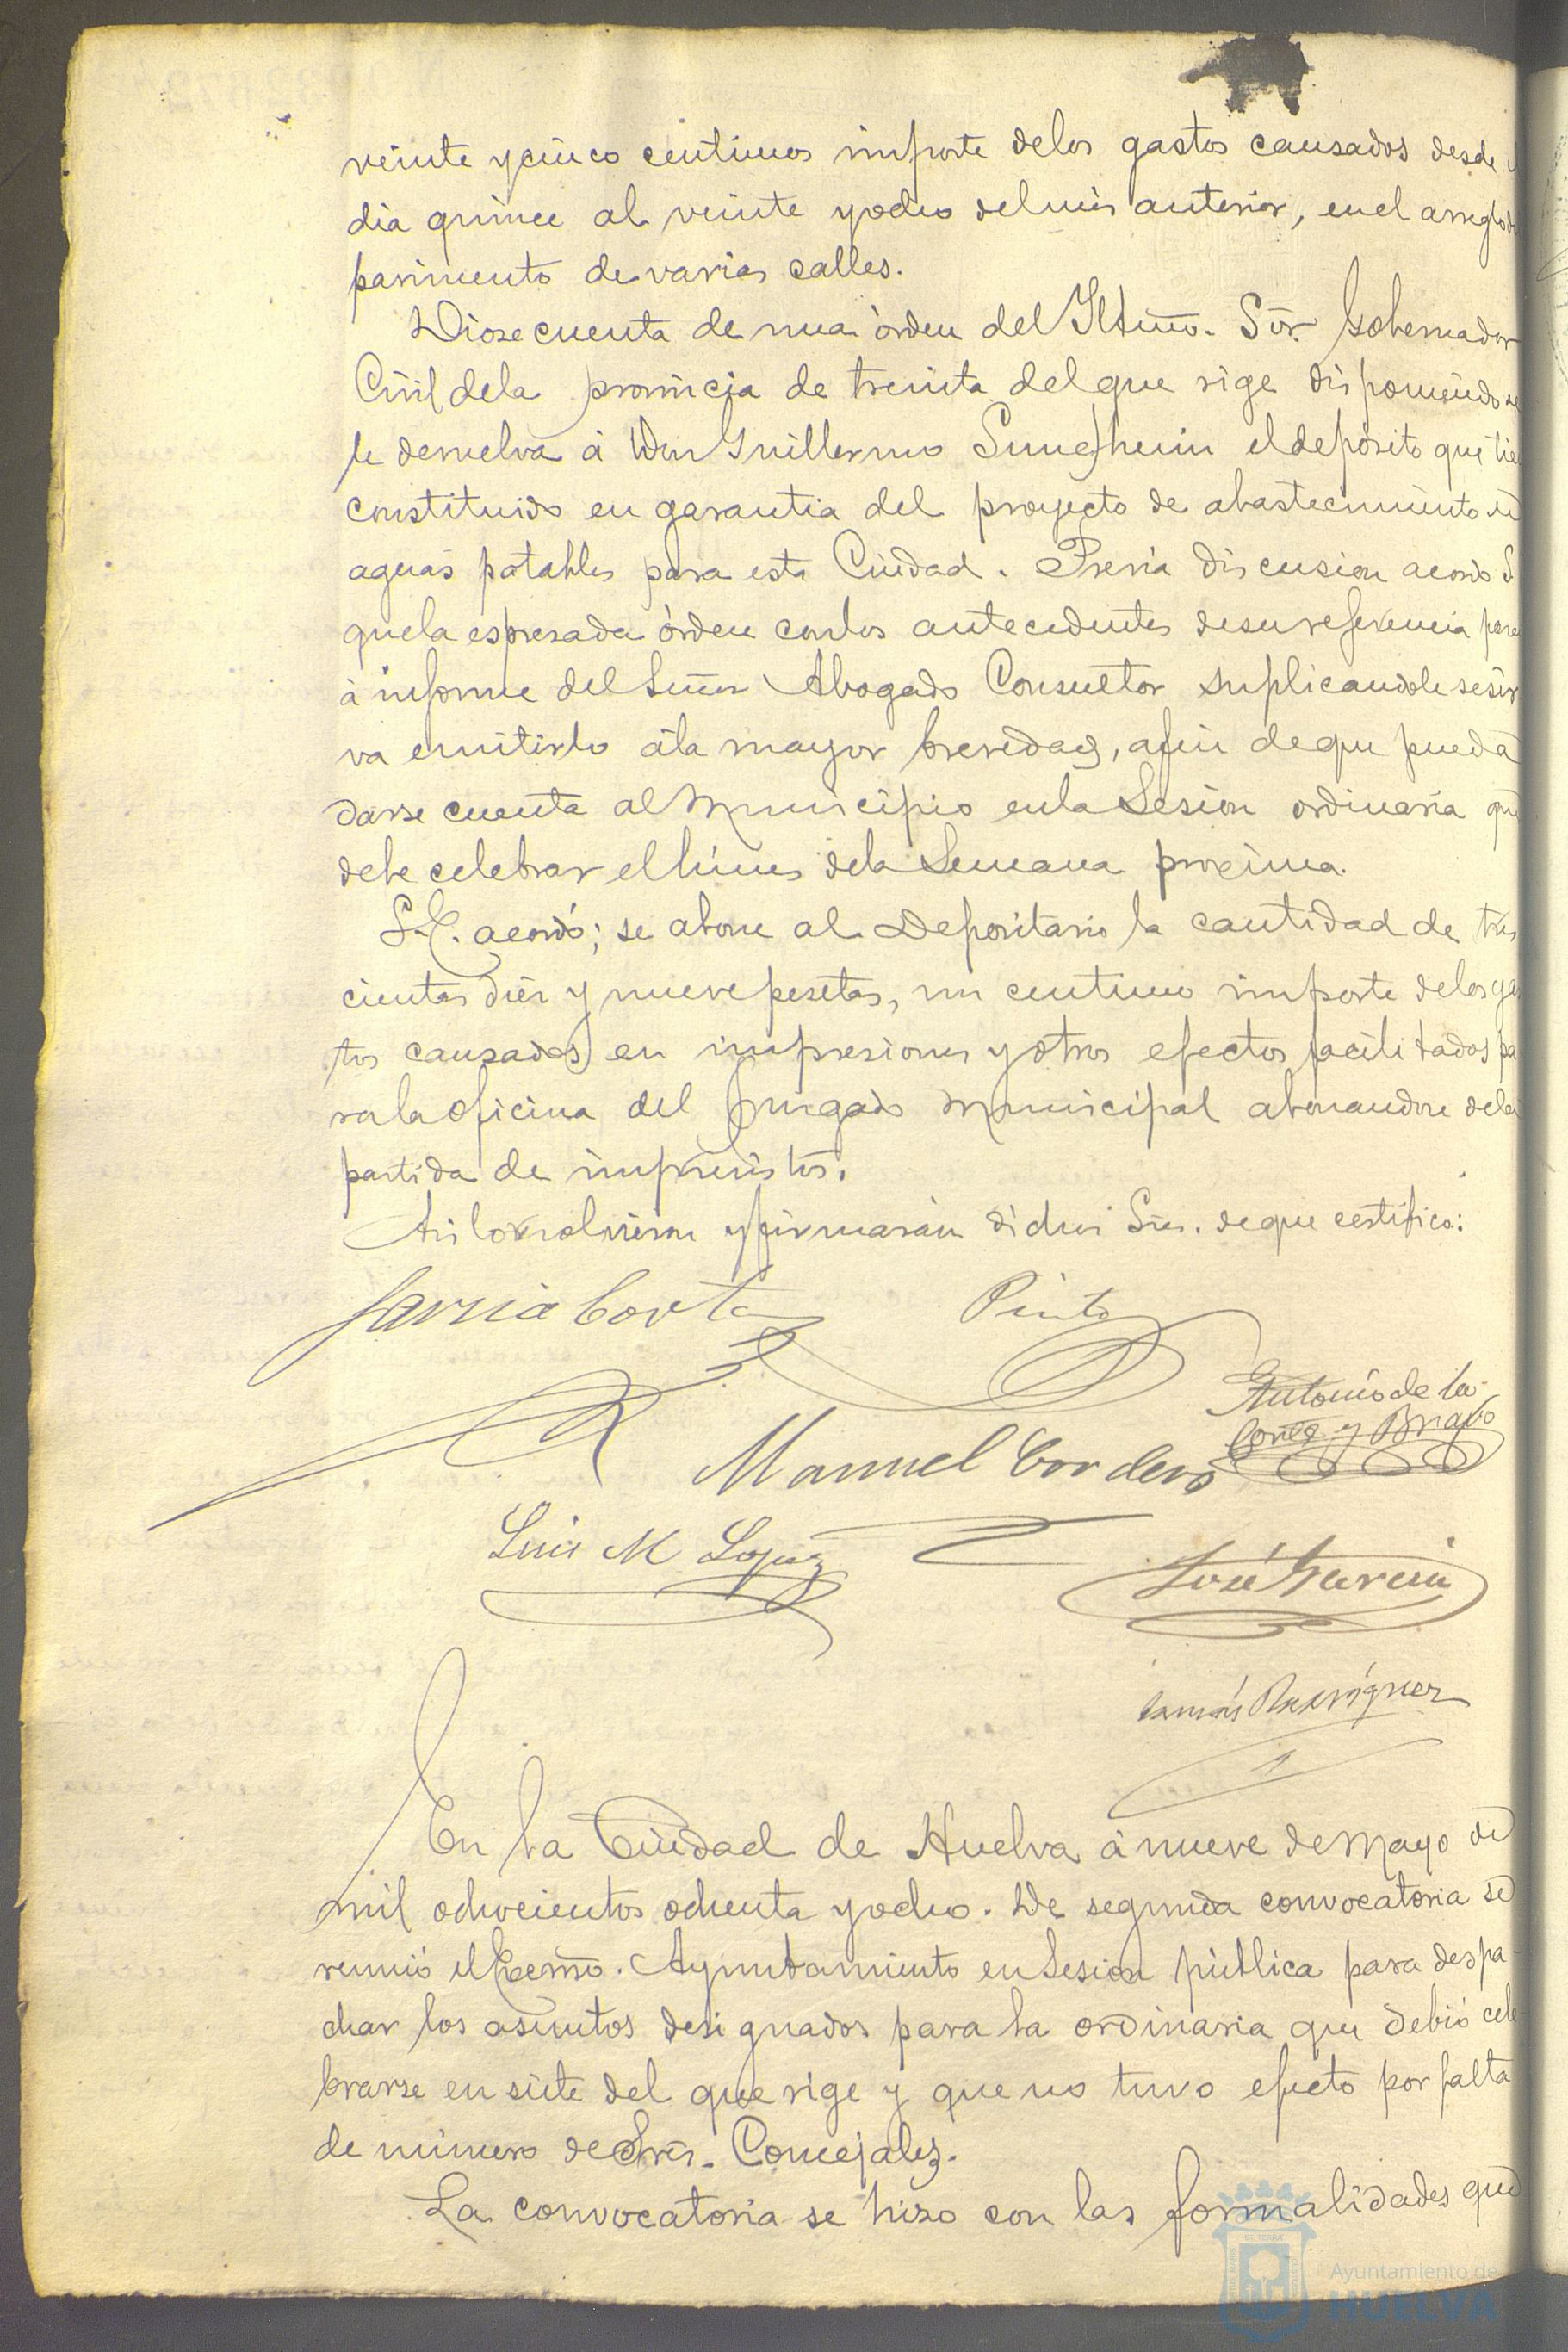 veinte y cinco centimos importe de los gastos causados desde
dia quince al veinte y ocho del mes anterior, en el arreglo
pavimento de varias calles.
Diose cuenta de una órden del Iltmo. Sor. Gobernador
Civil de la provincia de treinta del que rige disponiendo se
le devuelva á Don Guillermo Sundheim el depósito que tie
constituido en garantia del proyecto de abastecimiento de
aguas potables para esta Ciudad. Previa discusion acordó S
que la espresada órden con los antecedentes de su referencia pase
á informe del Señor Abogado Consultor suplicandole se sir
va emitirlo á la mayor brevedad, afin de que pueda
darse cuenta al Municipio en la Sesion ordinaria que
debe celebrar el lúnes de la Semana proxima.
S. E. acordó; se abone al Depositario la cantidad de tres
cientas diez y nueve pesetas, un centimo importe de los gas
tos causados en impresiones y otros efectos facilitados pa
ra la oficina del Juzgado Municipal abonandose de la
partida de imprevistos.
Asi lo resolvieron y firmarán dichos Sres. de que certifico:
Garcia Corta Pinto
Antonio de la
Corte y Bravo
Manuel Cordero
Luis M Lopez
José Garcia
Tomás Rodríguez
En la Ciudad de Huelva á nueve de Mayo de
mil ochocientos ochenta y ocho. De segunda convocatoria se
reunió el Excmo. Ayuntamiento en Sesion pública para despa-
char los asuntos designados para la ordinaria que debió cele-
brarse en siete del que rige y que no tuvo efecto por falta
de número de Sres. Concejales.
La convocatoria se hizo con las formalidades que
Ayuntamiento de
HUELVA